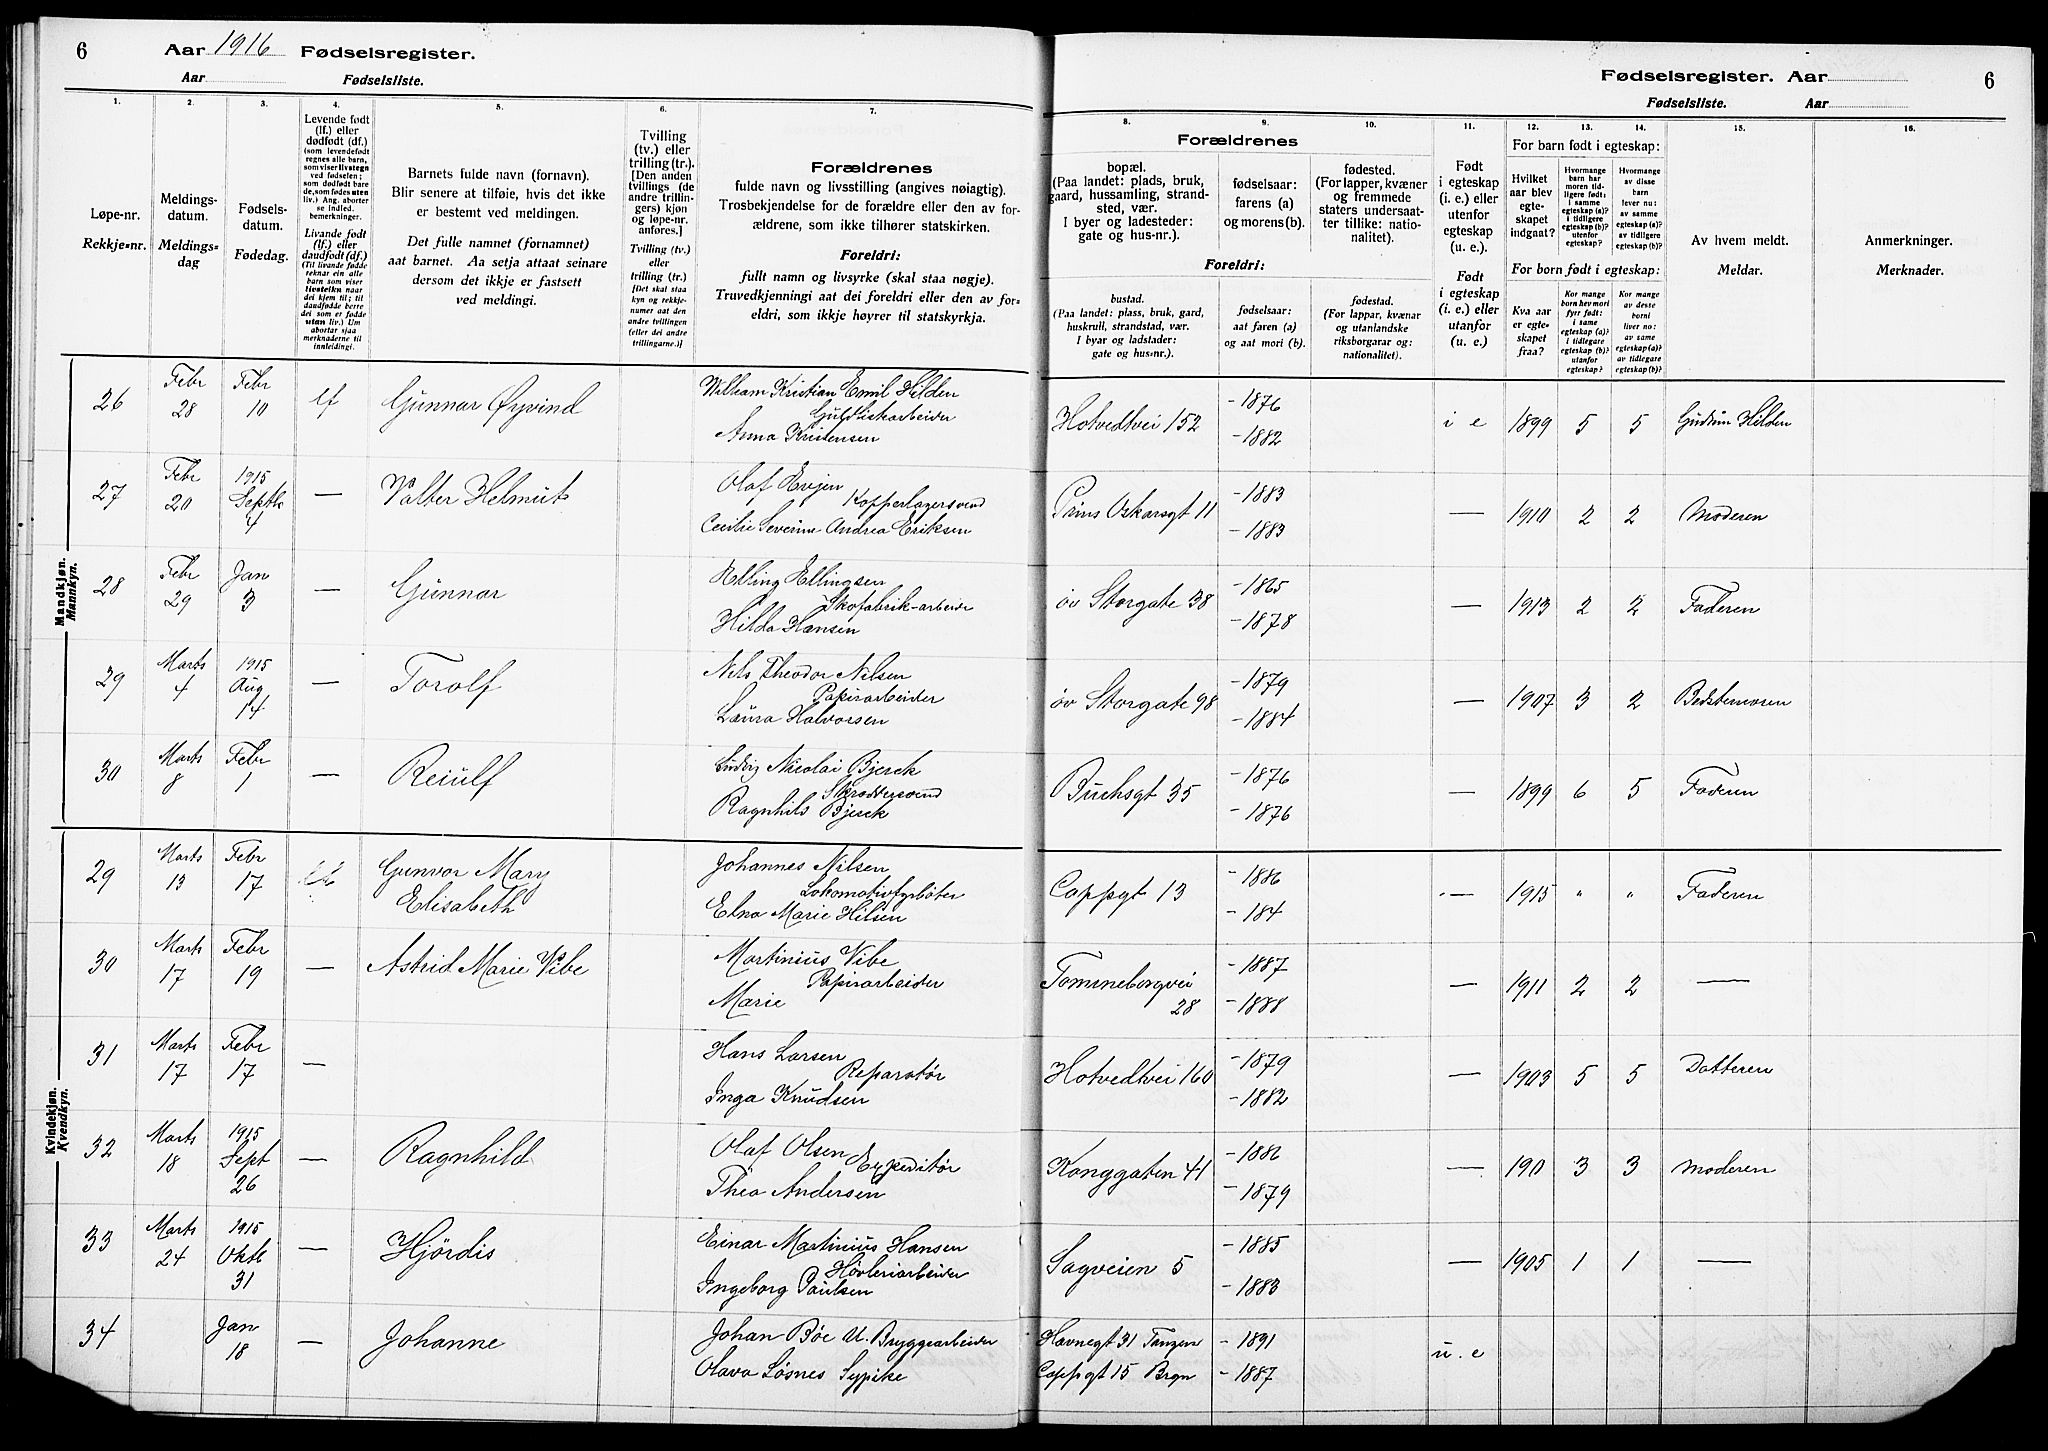 6 Aar 1916 Fødselsregister.
Aar Fødselsliste.
Fødselsregister. Aar 6
Fødselsliste. Aar
1. 2. 3. 4. 5. 6. 7. 8. 9. 10. 11. 12. 13. 14. 15. 16.
Løpe-nr.
Rekkje-nr.
Meldings-
datum.
Meldings-
dag
Fødsels-
datum.
Fødedag.
Levende født
(lf.) eller
dødfødt (df.)
(som levendefødt
regnes alle barn,
som viser livstegn
ved fødselen;
som dødfødt bare
de, som fødes uten
liv.) Ang. aborter
se indled.
bemerkninger.
Livande født
(lf.) eller
daudfødt (df.)
(Til livande fødde
reknar ein alle
barn som viser
livsteikn naar
dei kjem til; til
daudfødde berre
dei som er fødde
utan liv.) Um
abortar sjaa
merknaderne til
innleidingi.
Barnets fulde navn (fornavn).
Blir senere at tilføie, hvis det ikke
er bestemt ved meldingen.
Det fulle namnet (fornamnet)
aat barnet. Aa setja attaat seinare
dersom det ikkje er fastsett
ved meldingi.
Tvilling
(tv.) eller
trilling (tr.).
[Den anden
tvillings (de
andre trillin-
gers) kjøn
og løpe-nr.
anføres.]
Tvilling (tv.)
eller
trilling (tr.)
[Det skal staa
kyn og rekkje-
numer aat den
andre tvillingen
(eller dei andre
trillingarne.)]
Forældrenes
fulde navn og livsstilling (angives nøiagtig).
Trosbekjendelse for de forældre eller den av for-
ældrene, som ikke tilhører statskirken.
Foreldri:
fullt namn og livsyrke (skal staa nøgje).
Truvedkjenningi aat dei foreldri eller den av for-
eldri, som ikkje høyrer til statskyrkja.
Forældrenes
bopæl.
(Paa landet: plads, bruk,
gaard, hussamling, strand-
sted, vær.
I byer og ladesteder:
gate og hus-nr.).
fødselsaar:
farens (a)
og morens (b).
fødested.
(For lapper, kvæner
og fremmede
staters undersaat-
ter tillike: natio-
nalitet).
Foreldri:
bustad.
(Paa landet: plass, bruk, gard,
huskrull, strandstad, vær.
I byar og ladstader:
gate og hus-nr.).
fødselsaar:
aat faren (a)
og aat mori (b).
fødestad.
(For lappar, kvænar
og utanlandske
riksborgarar og:
nationalitet).
Født
i egteskap
(i. e.) eller
utenfor
egteskap
(u. e.).
Født
i egteskap
(i. e.) eller
utanfor
(u. e.)
For barn født i egteskap:
Hvilket
aar blev
egte-
skapet
indgaat?
Hvormange
barn har
moren tid-
ligere født:
i samme
egteskap (a)?
i tidligere
egteskap (b)?
utenfor
egteskap?
Hvormange
av disse
barn
lever nu:
av samme
egteskap (a)?
av tidligere
egteskap (b)?
For born født i egteskap:
Kva aar
er egte-
skapet
fraa?
Kor mange
born hev mori
fyrr født:
i same
egteskap (a)?
i tidlegare
egteskap (b)?
utanfor
egteskap?
Kor mange
av desse
borni
liver no:
av same
egteskap (a)?
av tidlegare
egteskap (b)?
Av hvem meldt.
Meldar.
Anmerkninger.
Merknader.
Mandkjøn.
Mannkyn.
26 Febr 28 Febr 10 lf Gunnar Øyvind Wilham Kristian Emil Hilden
Gulvlistarbeider
Anna Kristensen Hotvedtvei 152 -1876 -1882 i e 1899 5 5 Gudrun Hilden
27 Febr 20 1915 Septb 4 — Valter Helmut Olaf Evjen
Kopperlagersvend
Cecilie Severine Andrea Eriksen Prins Oskarsgt 11 -1883 -1883 — 1910 2 2 Moderen
28 Febr 29 Jan 3 — Gunnar Elling Ellingsen
Skofabrik-arbeider
Hilda Hansen øv Storgate 38 -1865 -1878 — 1913 2 2 Faderen
29 Marts 4 1915 Aug 14 — Torolf Nils Theodor Nilsen
Papirarbeider
Laura Halvorsen øv Storgate 98 -1879 -1884 — 1907 3 2 Bedstemoren
30 Marts 8 Febr 1 — Reiulf Ludvig Nicolai Bjerck
Skræddersvend
Ragnhild Bjerck Buchsgt 35 -1876 -1876 — 1899 6 5 Faderen
Kvindekjøn.
Kvendkyn.
29 Marts 13 Febr 17 lf Gunvor Mary
Elisabeth Johannes Nilsen
Lokomotivfyrbøter
Elna Marie Nilsen Cappgt 13 -1886 -184 — 1915 " " Faderen
30 Marts 17 Febr 19 — Astrid Marie Vibe Martinius Vibe
Papirarbeider
Marie Tomineborgvei
28 -1887 -1888 — 1911 2 2 —
31 Marts 17 Febr 17 — Hans Larsen
Reparatør
Inga Knudsen Hotvedtvei 160 -1879 -1882 — 1903 5 5 Datteren
32 Marts 18 1915 Sept 26 — Ragnhild Olaf Olsen
Expeditør
Thea Andersen Konggaten 41 -1886 -1879 — 190 3 3 Moderen
33 Marts 24 1915 Oktb 31 — Hjørdis Einar Martinius Hansen
Høvleriarbeider
Ingeborg Paulsen Sagveien 5 -1885 -1883 — 1905 1 1 —
34 Jan 18 — Johanne Johan Bøe U. Bryggearbeider
Olava Løsnes Sypike Havnegt 31 Tangen
Cappgt 15 Brgn -1891 -1887 u. e